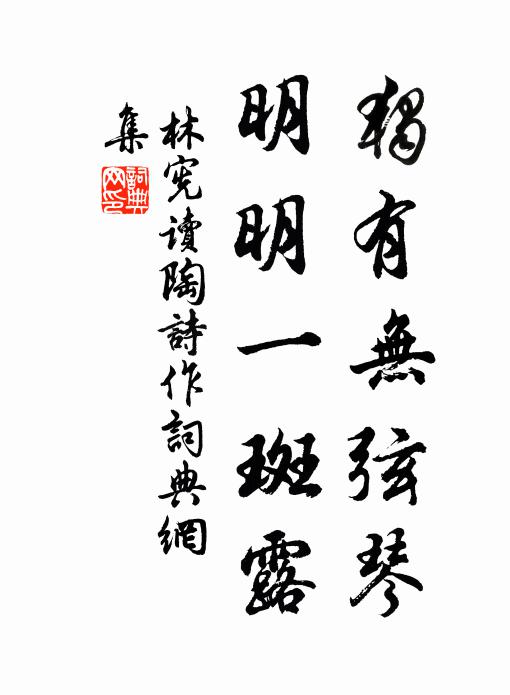 獨有無弦琴
明明一斑露
林宪讀陶詩作詞典網
集
詞典
网印